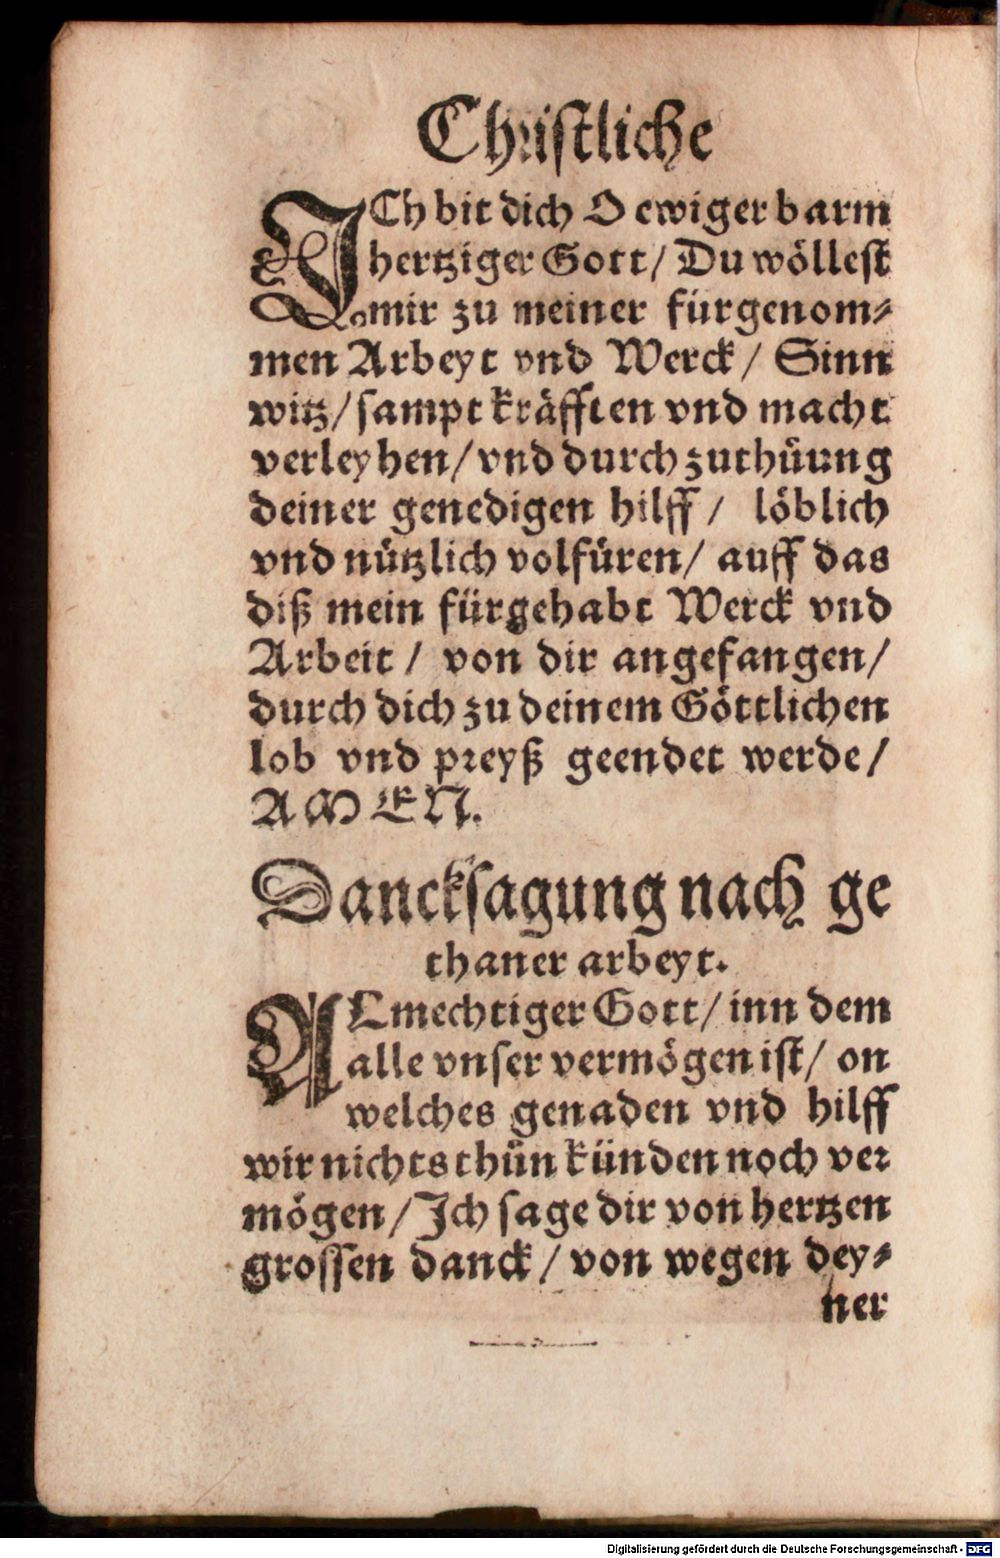 Christliche
ICh bit dich O ewiger barm
hertziger Gott/ Du wöllest
mir zu meiner fürgenom⸗
men Arbeyt vnd Werck/ Sinn
witz/ sampt kräfften vnd macht
verleyhen/ vnd durch zuthüung
deiner genedigen hilff/ löblich
vnd nützlich volfüren/ auff das
diß mein fürgehabt Werck vnd
Arbeit/ von dir angefangen/
durch dich zu deinem Göttlichen
lob vnd preyß geendet werde/
AMEN.
Dancksagung nach ge
thaner arbeyt.
ALmechtiger Gott/ inn dem
alle vnser vermögen ist/ on
welches genaden vnd hilff
wir nichts thün künden noch ver
mögen/ Ich sage dir von hertzen
grossen danck/ von wegen dey⸗
ner
Digitalisierung gefördert durch die Deutsche Forschungsgemeinschaft - DFG